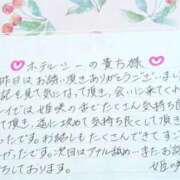 ♡ホテルシーの貴方様♡
昨日はお誘い頂きありがとうございまし
記も見て気になって頂き、会いに来てくれ
イでは姫咲の舌でたくさん気持ち良
て頂き、逆に攻めて気持ち良くして頂き
ったです。お話しもたくさんできてす
かったです。次回はアナル舐め…またお誘
ちしております。
姫咲